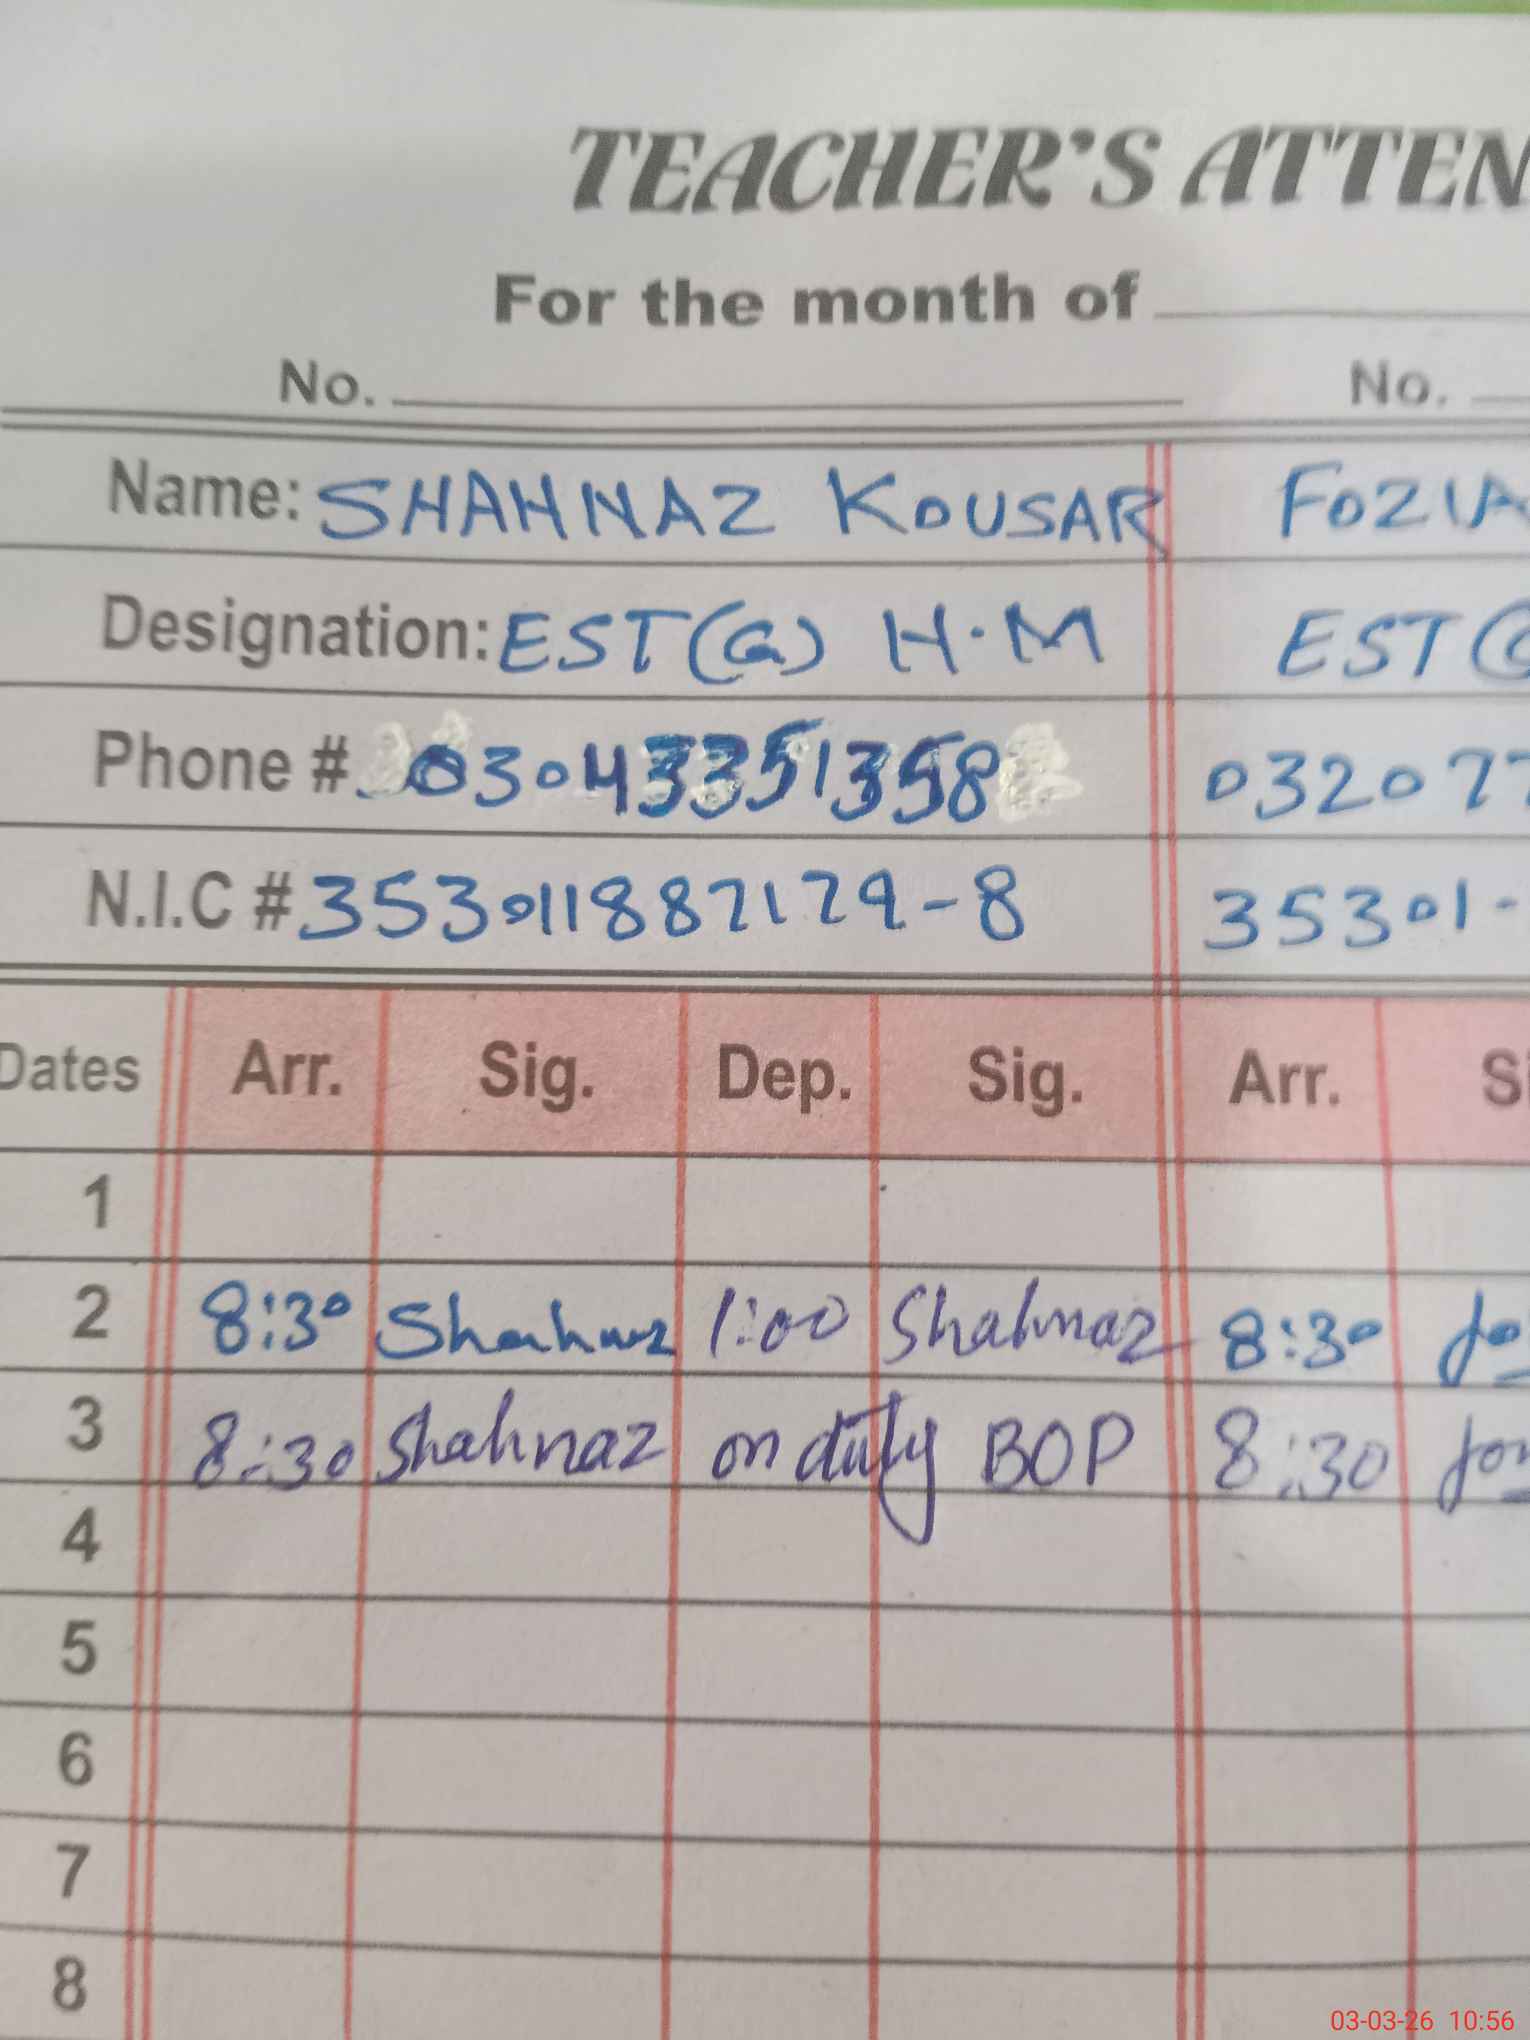 TEACHER'S ATTEN
For the month of
No. No.
Name: SHAHNAZ KOUSAR FOZIA
Designation: EST(G) H.M EST(G
Phone # 03043351358 032077
N.I.C # 353011887179-8 35301-
Dates Arr. Sig. Dep. Sig. Arr. Si
1
2 8:30 Shahnaz 1:00 Shahnaz 8:30
3 8:30 Shahnaz on duty BOP 8:30
4
5
6
7
8
03-03-26 10:56